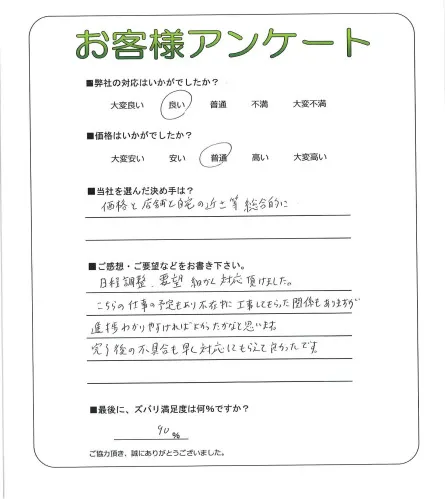 お客様アンケート
■弊社の対応はいかがでしたか？
大変良い 良い 普通 不満 大変不満
■価格はいかがでしたか？
大変安い 安い 普通 高い 大変高い
■当社を選んだ決め手は？
価格と店舗と自宅の近さ等総合的に
■ご感想・ご要望などをお書き下さい。
日程調整、要望 細かく対応頂けました。
こちらの仕事の予定もあり不在中に工事してもらった関係もありますが
進捗わかりやすければよかったかなと思います。
完了後の不具合も早く対応してもらえて良かったです
■最後に、ズバリ満足度は何％ですか？
90 %
ご協力頂き、誠にありがとうございました。